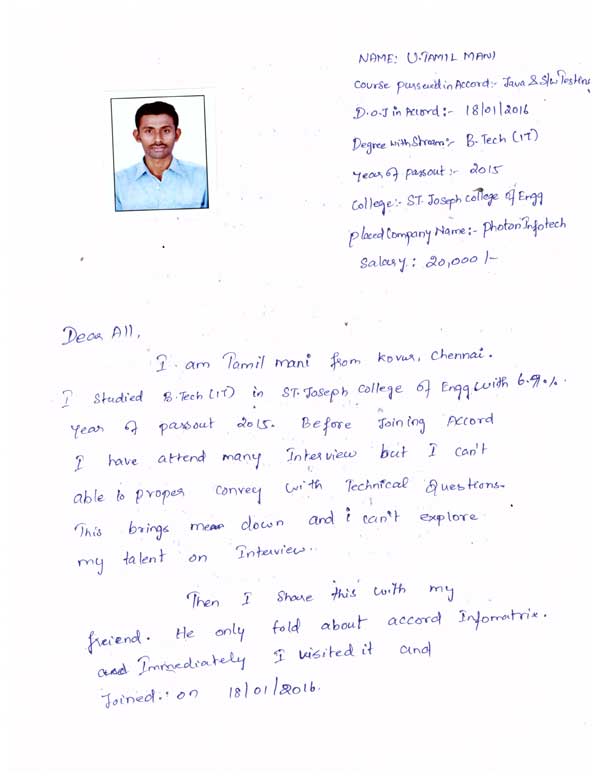 NAME: U.TAMIL MANI
Course pursued in Accord:- Java & S/w Testing
D.O.J in Accord:- 18/01/2016
Degree with Stream:- B.Tech (IT)
Year of passout :- 2015
College:- ST. Joseph college of Engg
placed Company Name:- Photon Infotech
Salary : 20,000 /-
Dear All,
I am Tamil mani from kovur, Chennai.
I studied B.Tech (IT) in ST. Joseph College of Engg with
Year of passout 2015. Before Joining Accord
I have attend many Interview but I can't
able to proper convey with Technical Questions.
This brings me down and i can't explore
my talent on Interview.
Then I share this with my
freiend. He only told about accord Infomatrix.
Immediately I visited it and
Joined.: on 18/01/2016.